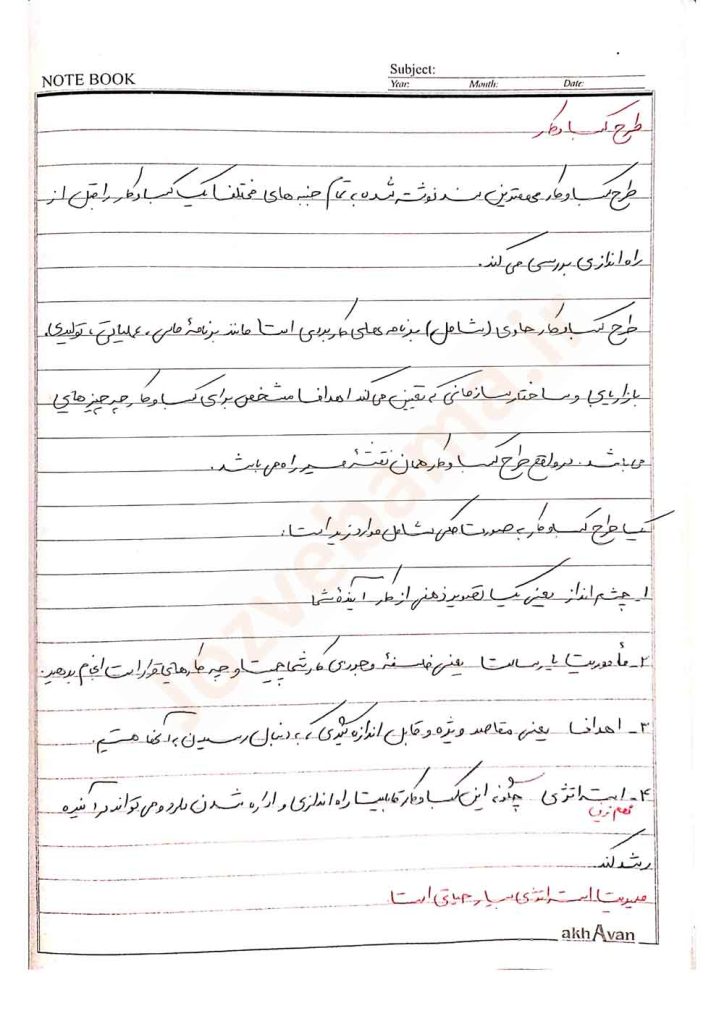 NOTE BOOK
Subject:
Year: Month: Date:
طرح کسب و کار
طرح کسب و کار مهمترین سند نوشته شده که تمام جنبه های مختلف یک کسب و کار را قبل از
راه اندازی بررسی می کند.
طرح کسب و کار حاوی (شامل) برنامه های کاربردی است مانند برنامهٔ مالی، عملیاتی، تولیدی،
بازاریابی و ساختار سازمانی که تعیین می کند اهداف مشخص برای کسب و کار چه چیزهایی
می باشد. در واقع طرح کسب و کار همان نقشهٔ مسیر راه می باشد.
یک طرح کسب و کار به صورت کلی شامل موارد زیر است:
۱ـ چشم انداز یعنی یک تصویر ذهنی از کار آیندهٔ شما
۲ـ مأموریت یا رسالت یعنی فلسفهٔ وجودی کار شما چیست و چه کارهای قرار است انجام بدهید.
۳ـ اهداف یعنی مقاصد ویژه و قابل اندازه گیری که به دنبال رسیدن به آنها هستیم.
۴ـ استراتژی چگونه این کسب و کار قابلیت راه اندازی و اداره شدن دارد و می تواند در آینده
مهم ترین
رشد کند.
مدیریت استراتژی بسیار حیاتی است.
akhAvan
jozvebama.ir